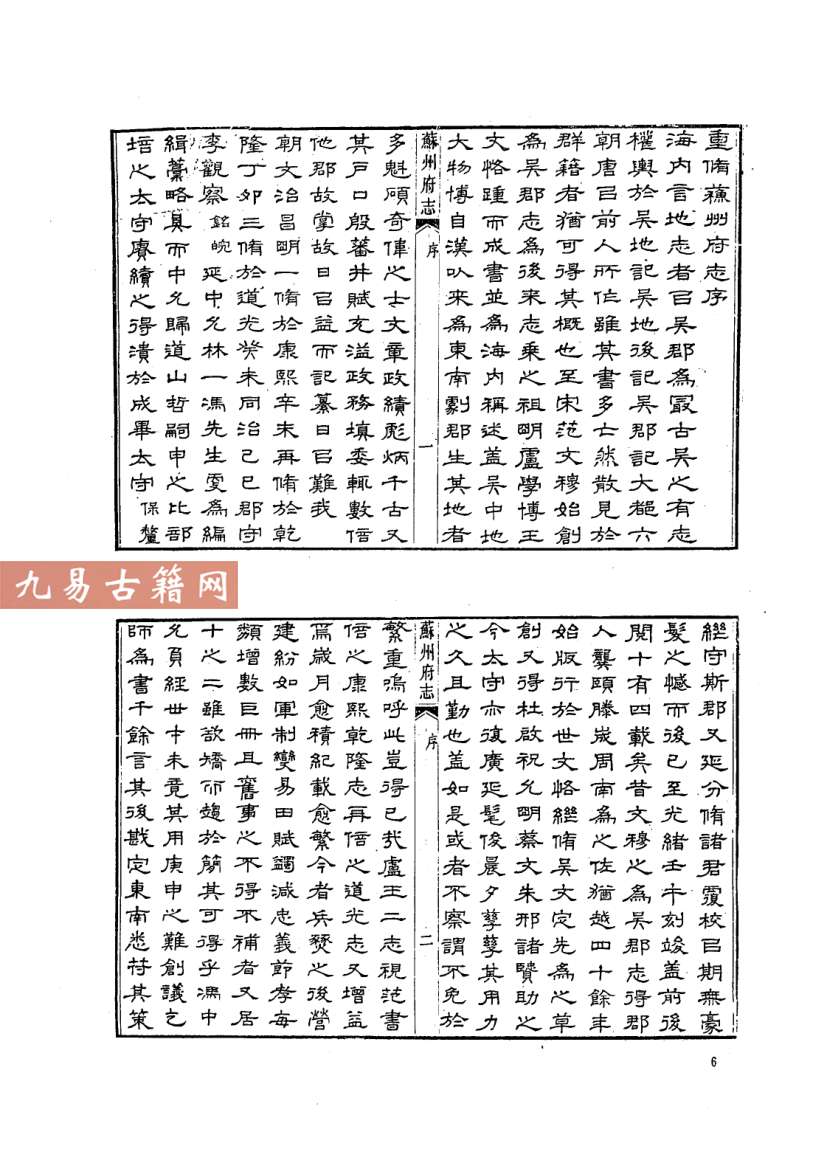 重脩蘇州府志序
海内言地志者㠯吳郡為冣古吳之有志
權輿於吳地記吳地後記吳郡記大都六
朝唐㠯前人所作雖其書多亡然散見於
群籍者猶可得其概也至宋范文穆始創
為吳郡志為後来志乘之祖明盧學博王
文恪踵而成書並為海内稱述蓋吳中地
大物博自漢㕥来為東南劇郡生其地者
蘇州府志
序
一
多魁碩奇偉之士文章政績彪炳千古又
其戶口殷蕃井賦充溢政務填委輒數倍
他郡故掌故日㠯益而記纂日㠯難我
朝文治昌明一脩於康熙辛未再脩於乾
隆丁卯三脩於道光癸未同治己巳郡守
李觀察銘皖延中允林一馮先生更為編
緝藁略具而中允歸道山哲嗣申之比部
培之太守賡續之得潰於成畢太守保釐
九易古籍网
繼守斯郡又延分脩諸君覆校㠯期無豪
髮之憾而後已至光緒壬午刻竣蓋前後
閱十有四載矣昔文穆之為吳郡志得郡
人龔頤滕峸周南為之佐猶越四十餘年
始版行於世文恪繼脩吳文定先為之草
創又得杜啟祝允明蔡文朱邢諸賢助之
今太守亦復廣延髦俊晨夕孳孳其用力
之久且勤也蓋如是或者不察謂不免於
蘇州府志
序
二
繁重嗚呼此豈得已哉盧王二志視范書
倍之康熙乾隆志再倍之道光志又增益
焉歲月愈積紀載愈繁今者兵燹之後營
建紛如軍制變易田賦蠲減忠義節孝每
類增數巨冊且舊事之不得不補者又居
十之二雖欲矯而趨於簡其可得乎馮中
允負經世才未竟其用庚申之難創議乞
師為書千餘言其後戡定東南悉符其策
6